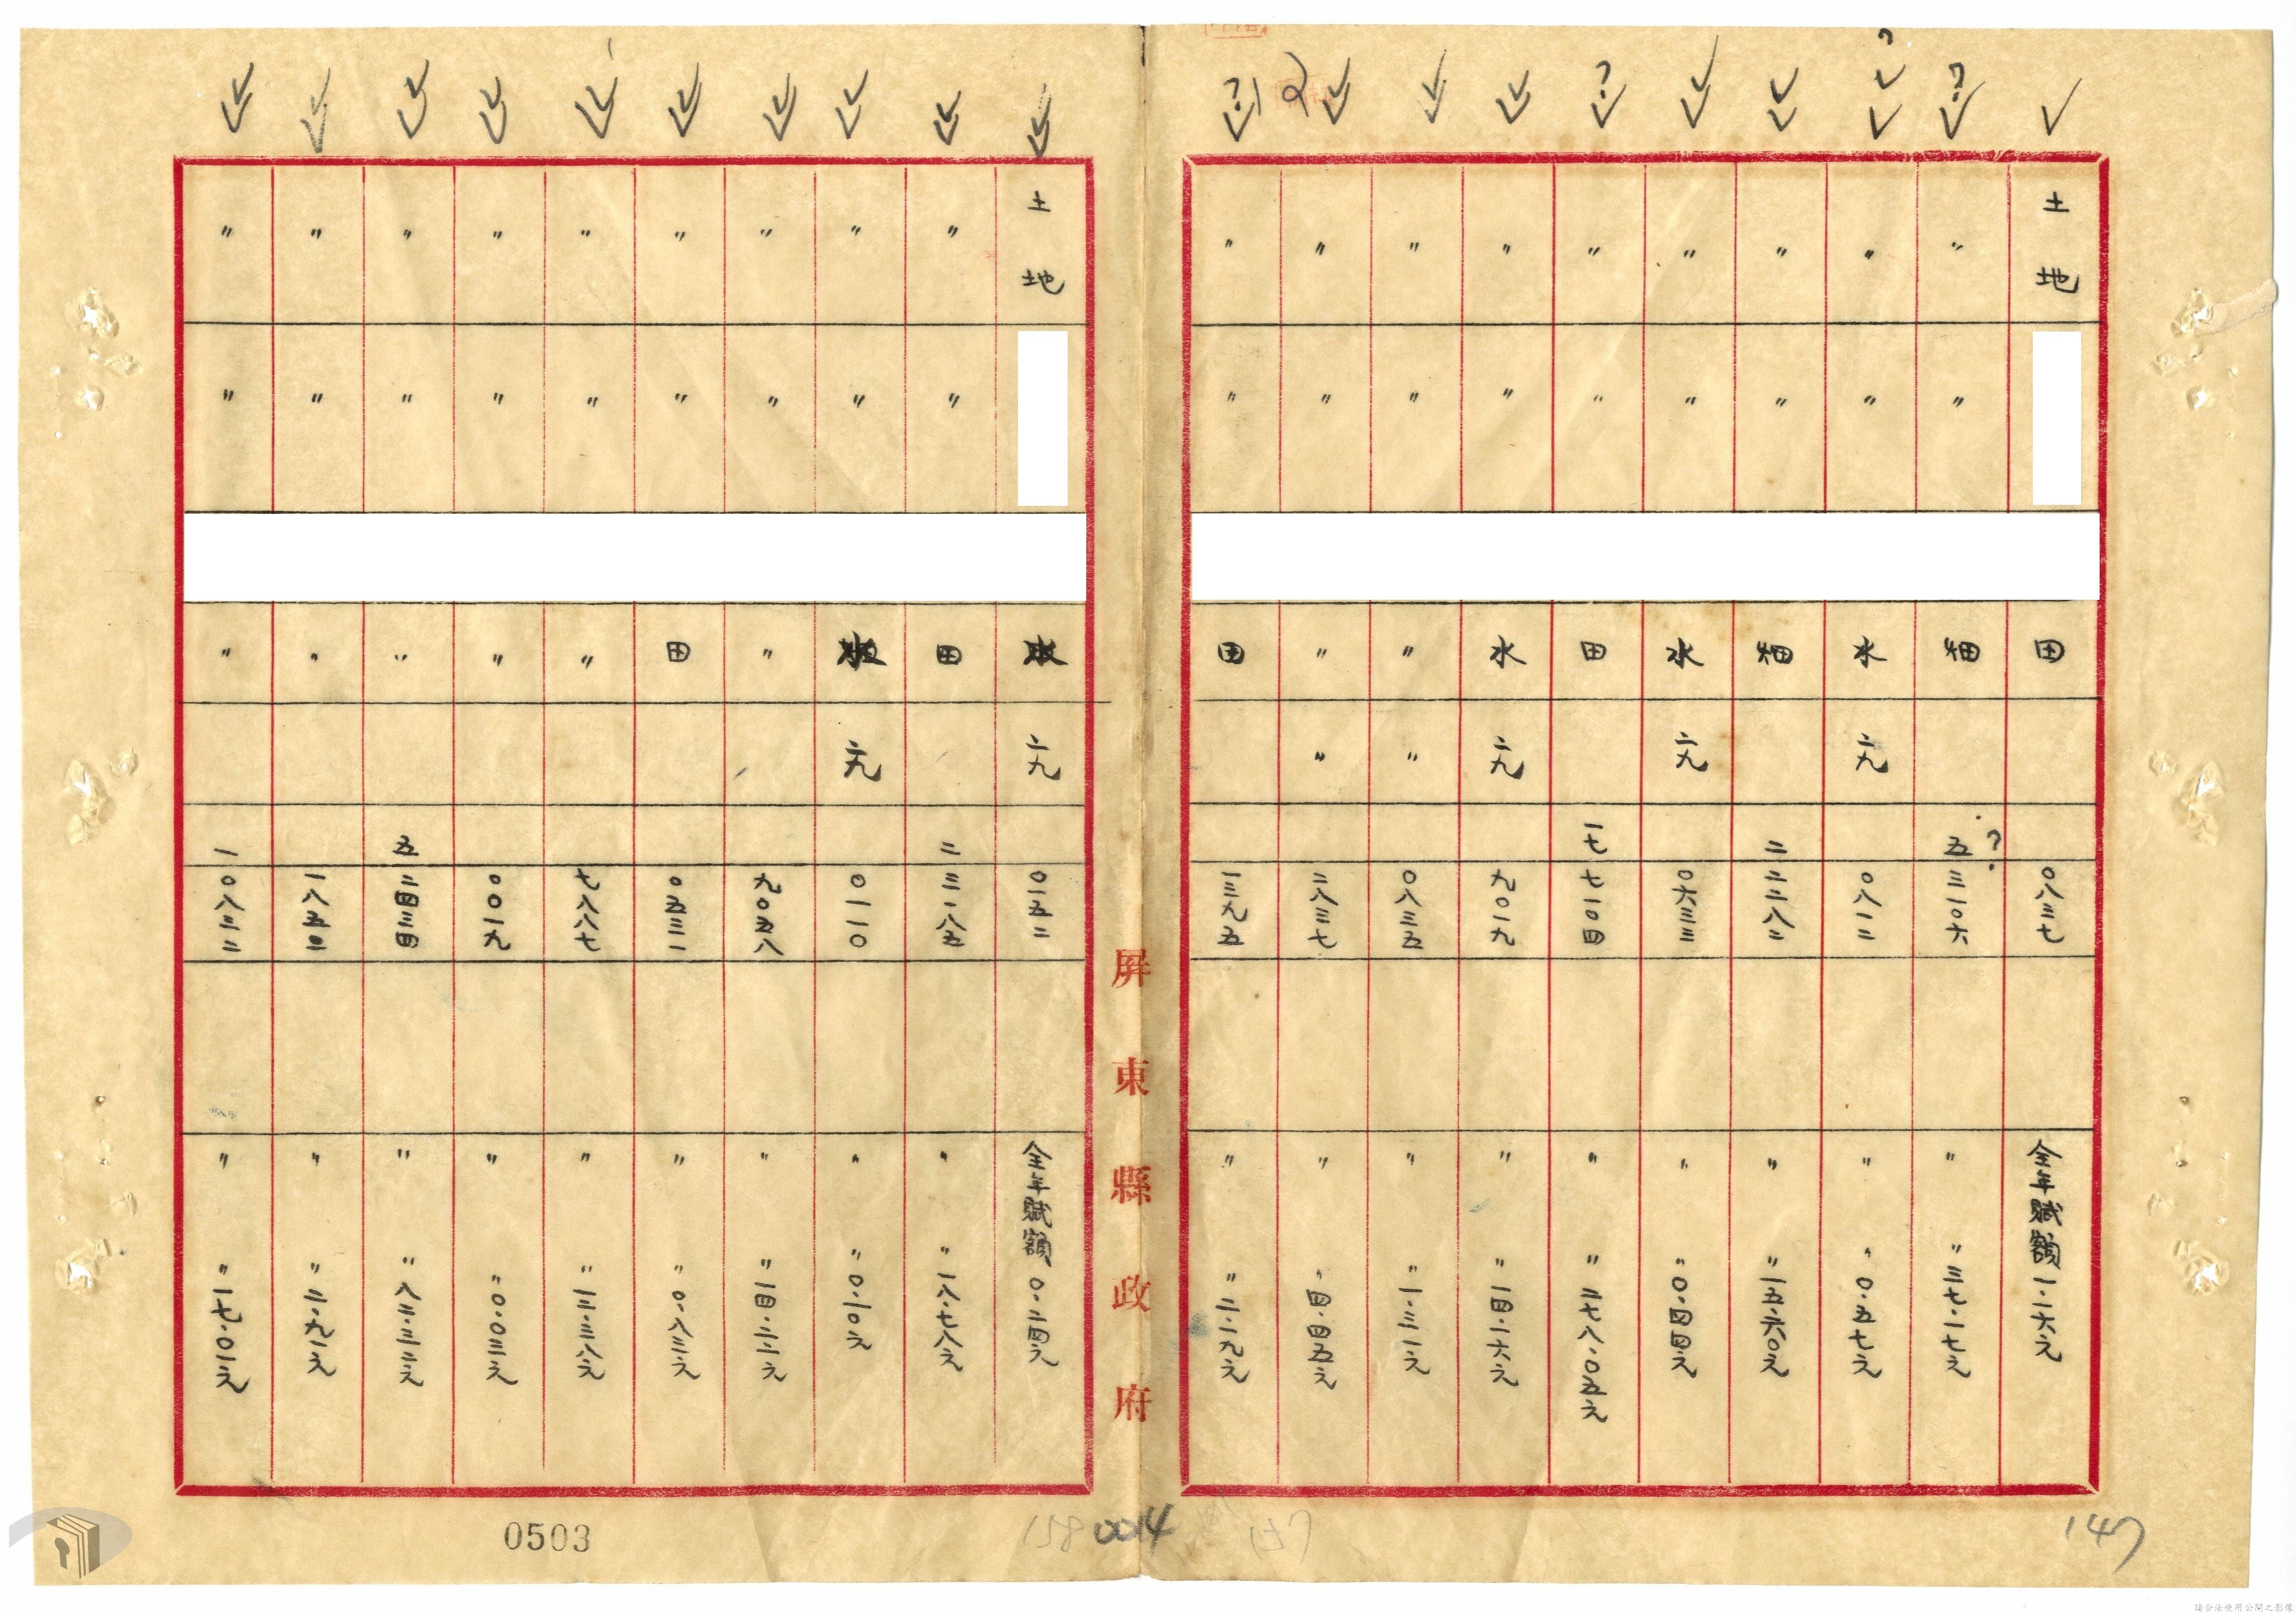 土地 田 〇八三七 全年賦額一.二六元
〃 〃 畑 五 三一〇六 〃 〃三七.一七元
〃 〃 水 二九 〇八一二 〃 〃〇.五七元
〃 〃 畑 二 二二八二 〃 〃一五.六〇元
〃 〃 水 二九 〇六三三 〃 〃〇.四四元
〃 〃 田 一七 七一〇四 〃 〃二七八.〇五元
〃 〃 水 二九 九〇一九 〃 〃一四.一六元
〃 〃 〃 〃 〇八三五 〃 〃一.三一元
〃 〃 〃 〃 二八三七 〃 〃四.四五元
〃 〃 田 一三九五 〃 〃二.一九元
屏東縣政府
土地 二九 〇一五二 全年賦額〇.二四元
〃 〃 田 二 三一八五 〃 〃一八.七八元
〃 〃 二九 〇一一〇 〃 〃〇.一〇元
〃 〃 〃 九〇五八 〃 〃一四.二二元
〃 〃 田 〇五三一 〃 〃〇.八三元
〃 〃 〃 七八八七 〃 〃一二.三八元
〃 〃 〃 〇〇一九 〃 〃〇.〇三元
〃 〃 〃 五 二四三四 〃 〃八二.三二元
〃 〃 〃 一八五二 〃 〃二.九一元
〃 〃 〃 一 〇八三二 〃 〃一七.〇一元
147
0014
158
0503
請合法使用公開之影像